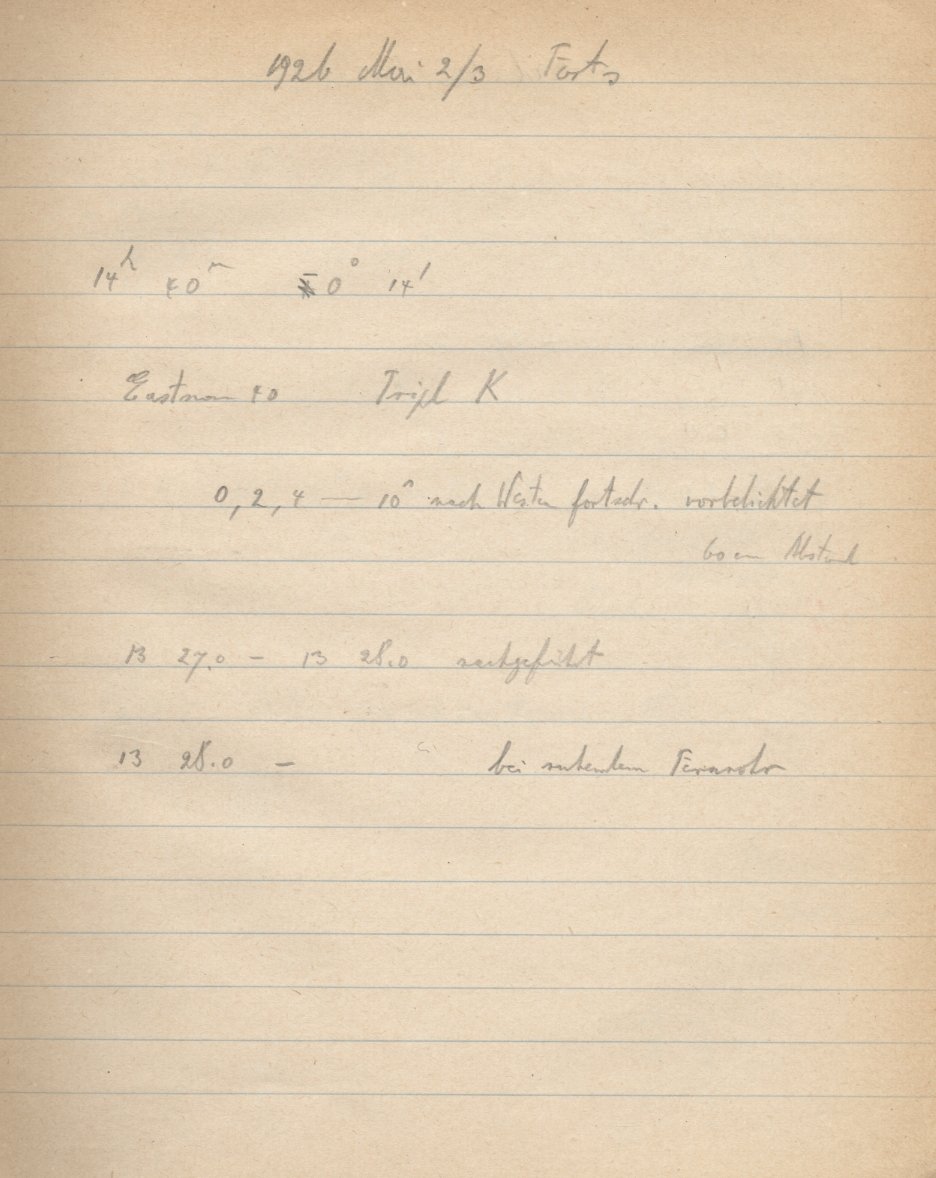 1926 Mai 2/3 Forts
14ʰ 40ᵐ - 0° 14'
Eastman 40 Tripl K
0, 2, 4 — 10ˢ nach Westen fortschr. vorbelichtet
60 cm Abstand
13 27.0 - 13 28.0 nachgeführt
13 28.0 - bei ruhendem Fernrohr